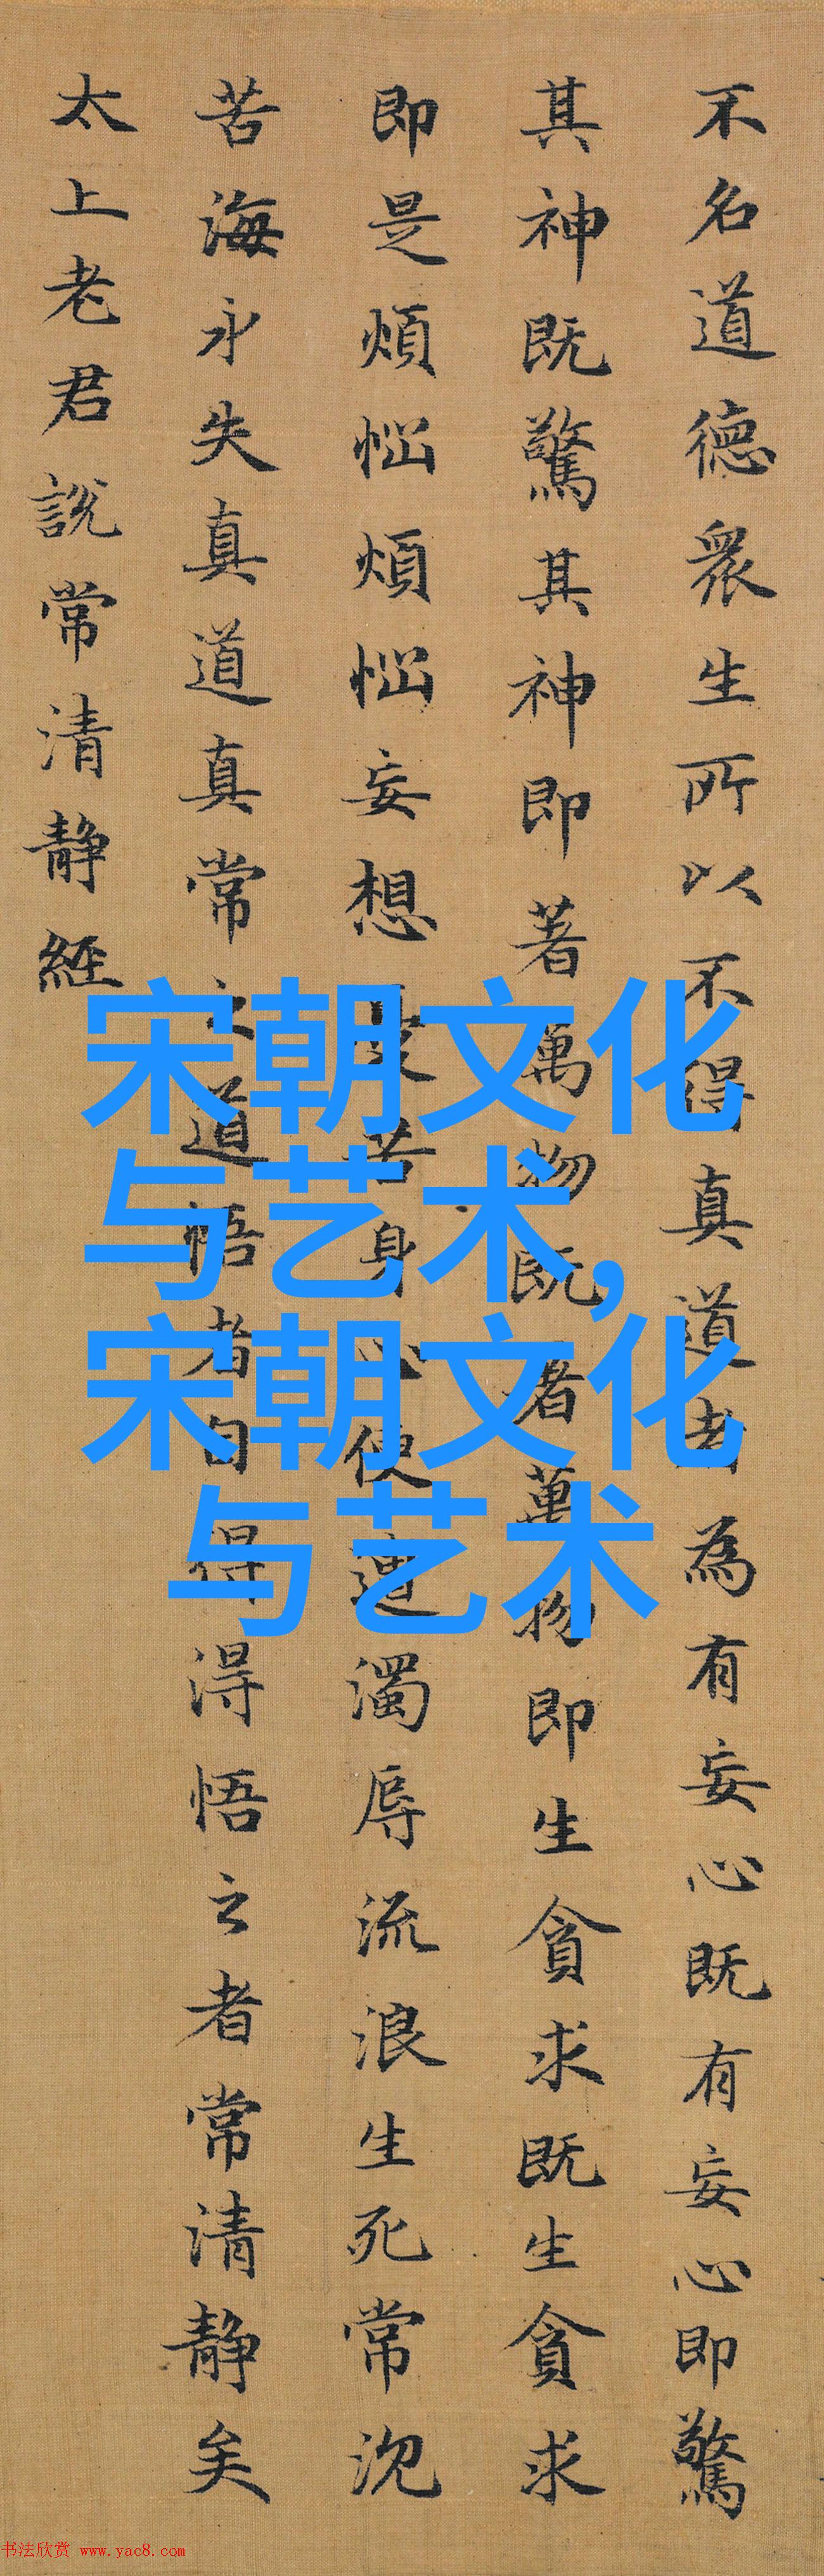 不名道德衆生所以不得真道者為有妄心既有妄心即驚
其神既驚其神即著萬物既著萬物即生貪求既生貪求
即是煩惱煩惱妄想憂苦身心便遭濁辱流浪生死常沉
苦海永失真道真常之道悟者自得得悟之者常清静矣
太上老君說常清静經
宋朝文化
与艺术,
宋朝文化
与艺术
书法欣赏 www.yac8.com